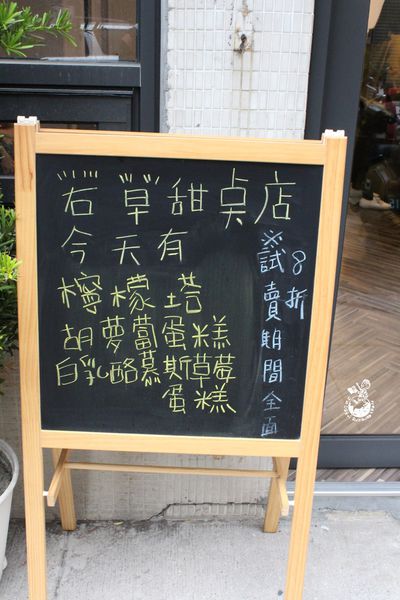 若草甜点店
今天有
檸檬塔
胡蘿蔔蛋糕
白乳酪慕斯草莓
蛋糕
※試賣期間全面
8折